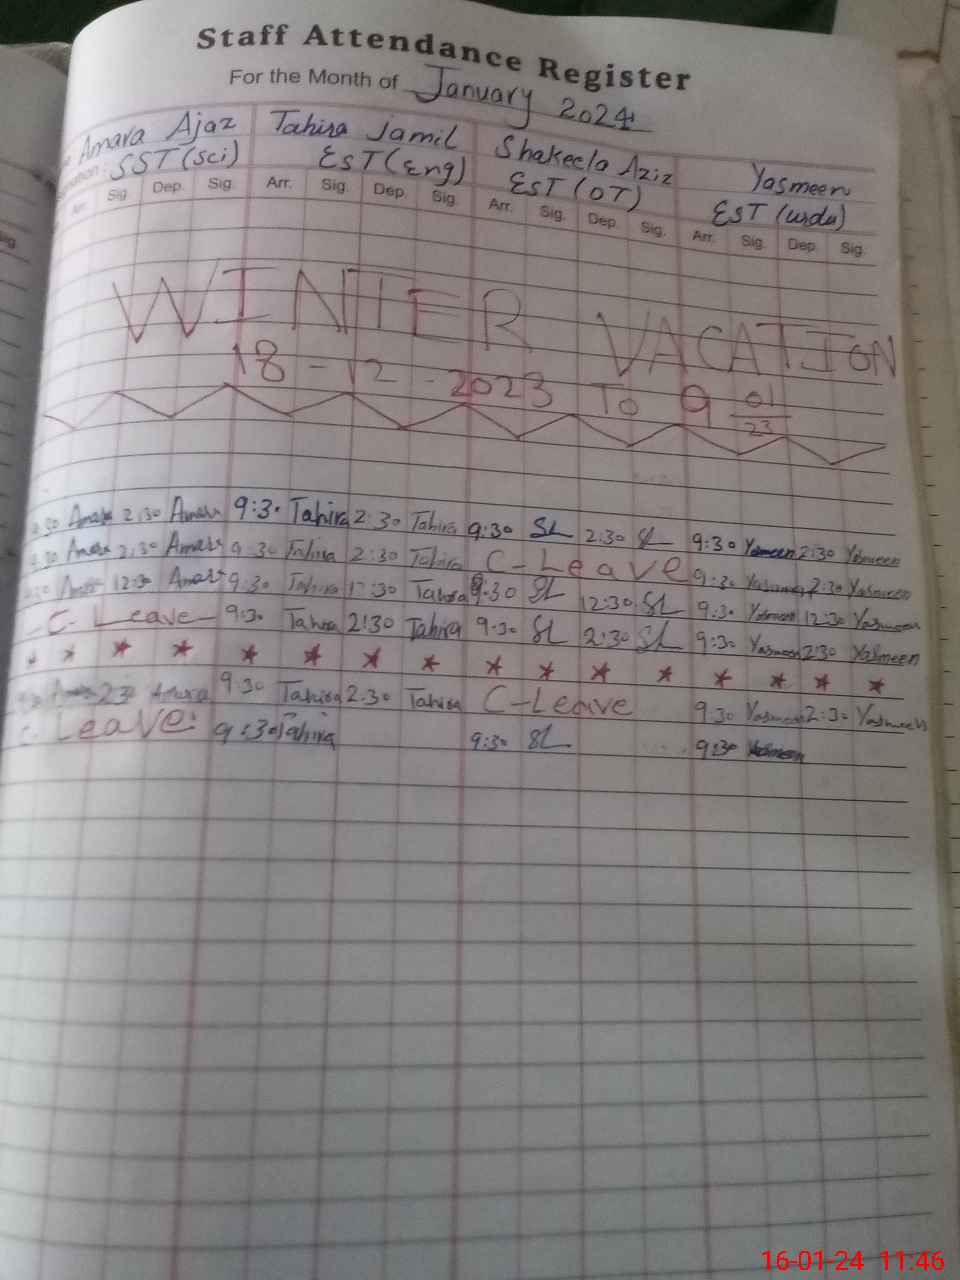 Staff Attendance Register
For the Month of January 2024
Amara Ajaz Tahira Jamil Shakeela Aziz Yasmeen
SST (Sci) EST (Eng) EST (OT) EST (urdu)
Arr. Sig. Dep. Sig. Arr. Sig. Dep. Sig. Arr. Sig. Dep. Sig. Arr. Sig. Dep. Sig.
WINTER VACATION
18-12-2023 To 9 01/23
Amara 2:30 Amara 9:30 Tahira 2:30 Tahira 9:30 SL 2:30 SL 9:30 Yasmeen 2:30 Yasmeen
9.30 Amara 2:30 Amara 9:30 Tahira 2:30 Tahira C-Leave 9:30 Yasmeen 2:30 Yasmeen
Amara 12:30 Amara 9:30 Tahira 12:30 Tahira 9:30 SL 12:30 SL 9:30 Yasmeen 12:30 Yasmeen
-C-Leave- 9:30 Tahira 2:30 Tahira 9:30 SL 2:30 SL 9:30 Yasmeen 2:30 Yasmeen
* * * * * * * * * * * * * * * *
Amara 2:30 Amara 9:30 Tahira 2:30 Tahira C-Leave 9:30 Yasmeen 2:30 Yasmeen
Leave 9:30 Tahira 9:30 SL 9:30 Yasmeen
16-01-24 11:46